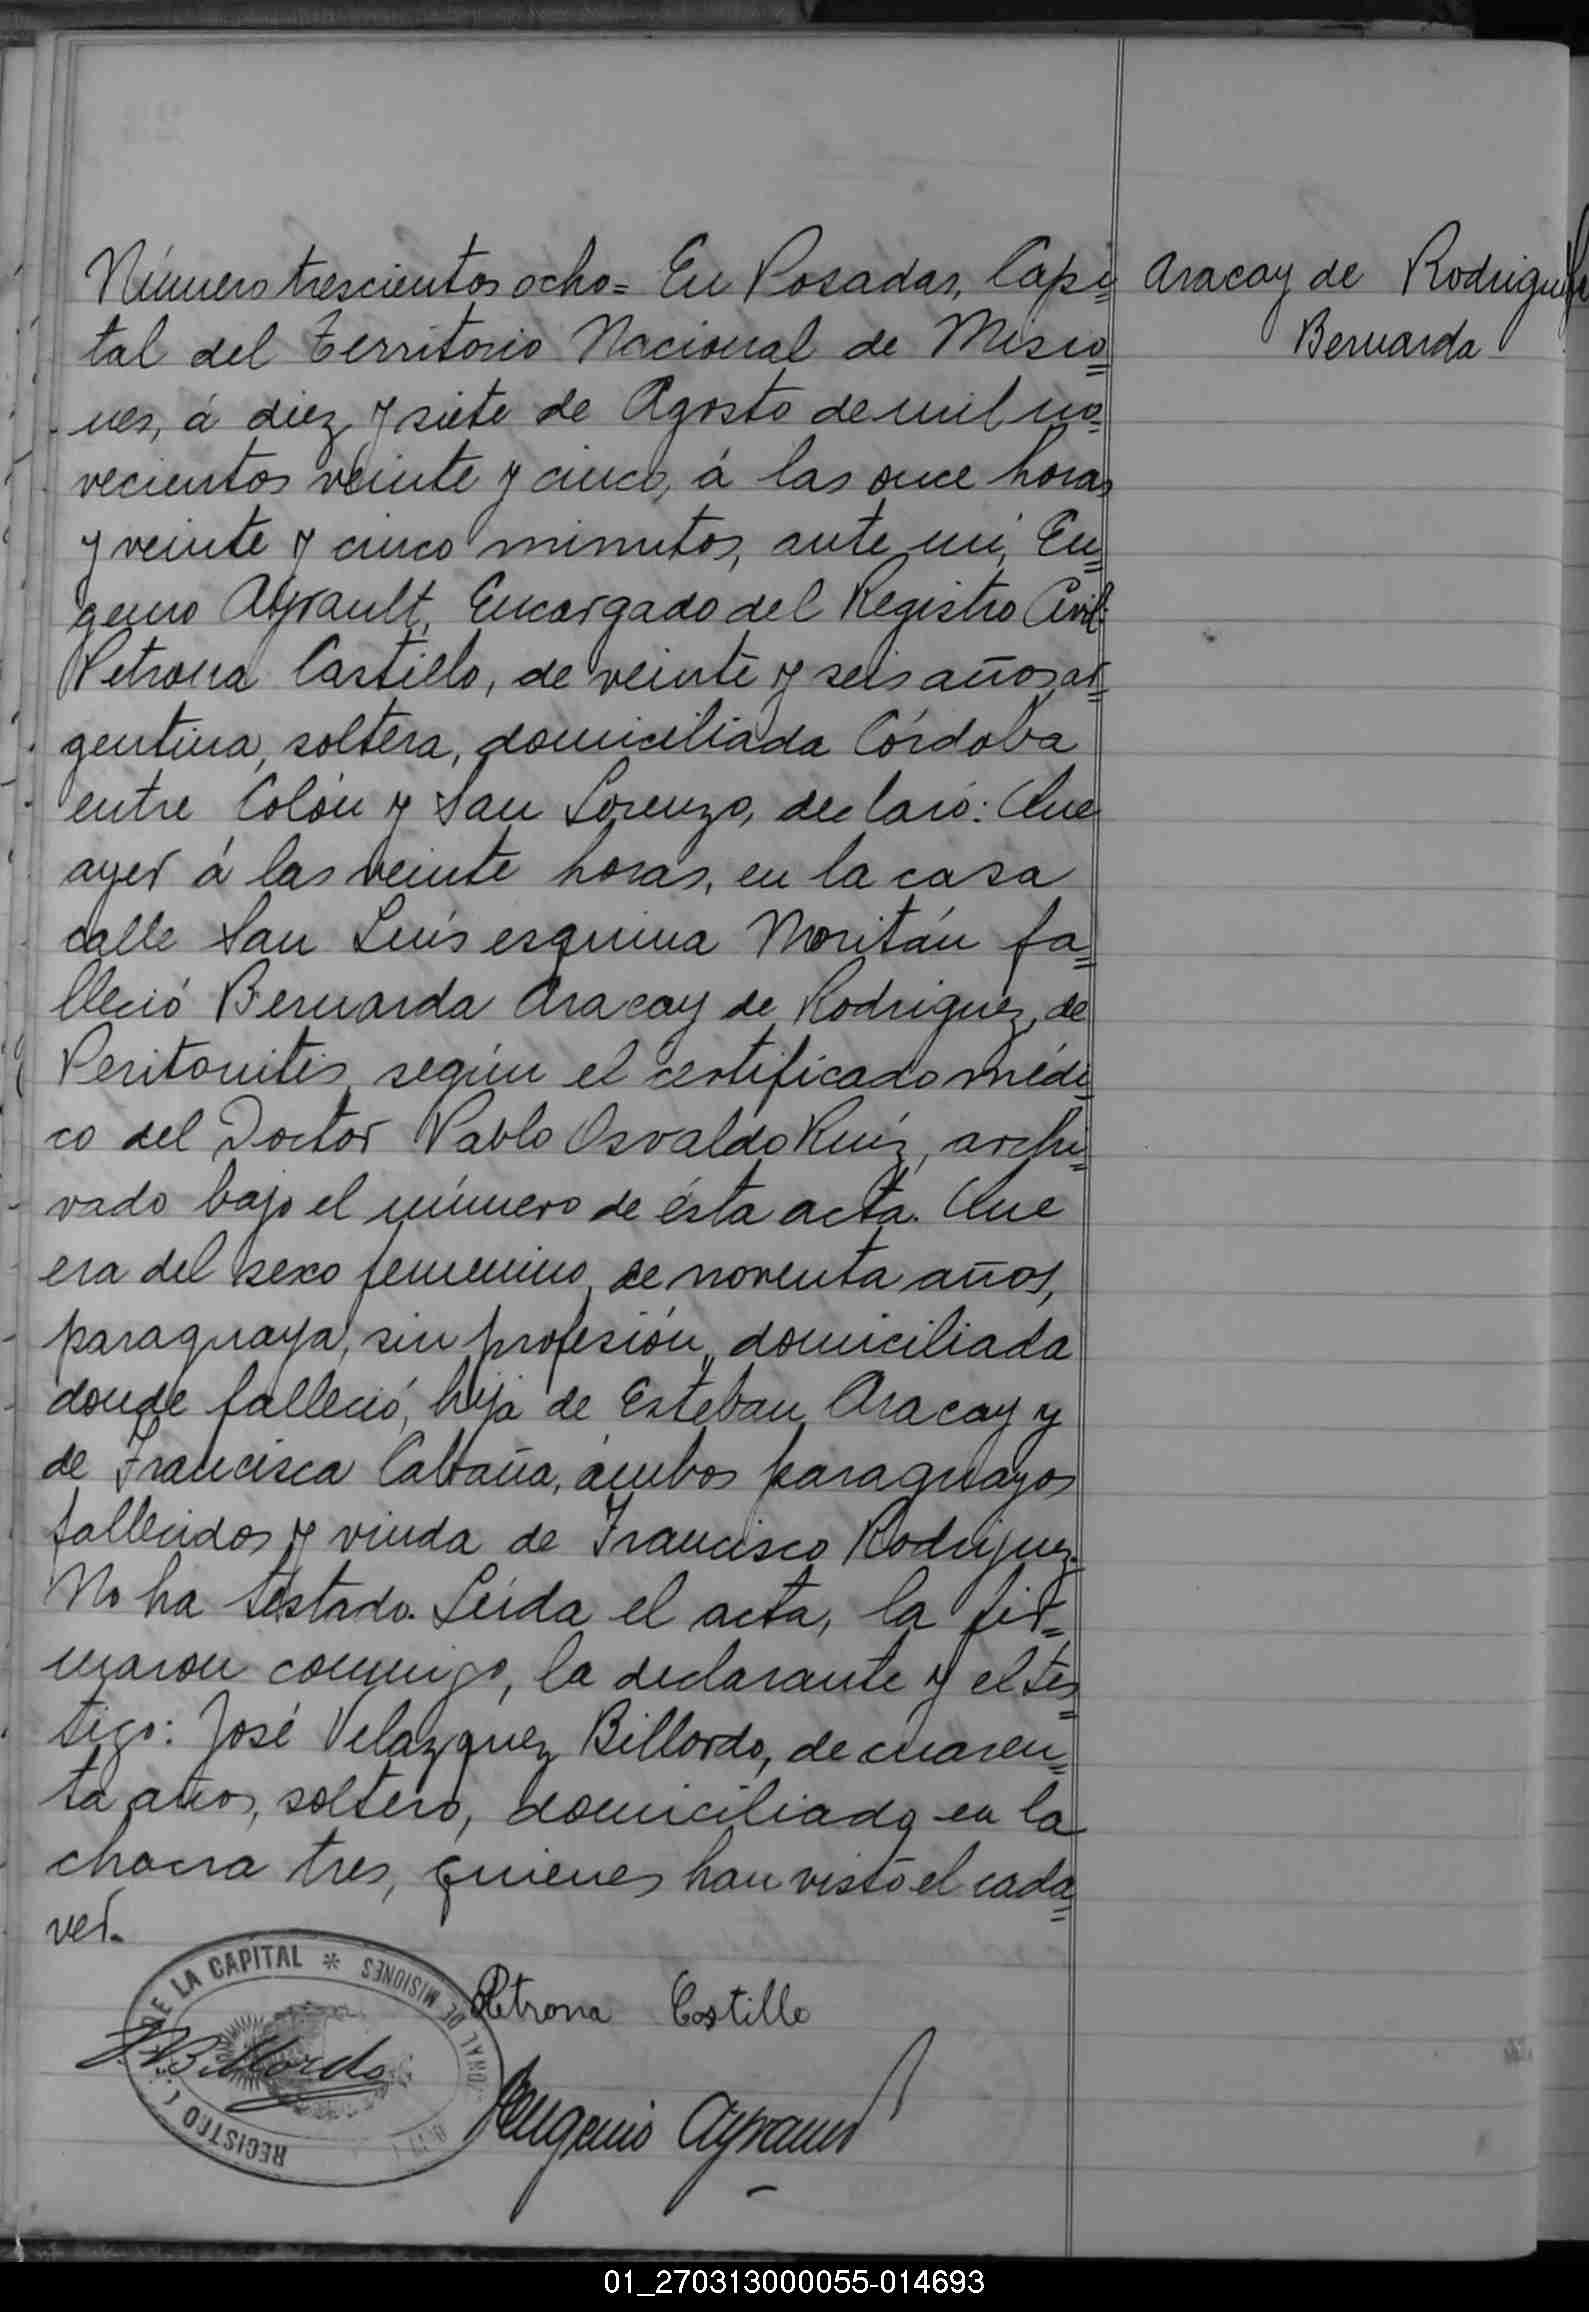 Número trescientos ocho= En Posadas, Capi=
tal del Territorio Nacional de Misio=
nes, á diez y siete de Agosto de mil no=
vecientos veinte y cinco, á las once horas
y veinte y cinco minutos, ante mí, Eu=
genio Ayrault, Encargado del Registro Civil:
Petrona Castillo, de veinte y seis años, ar=
gentina, soltera, domiciliada Córdoba
entre Colón y San Lorenzo, declaró: Que
ayer á las veinte horas, en la casa
calle San Luís esquina Moritán fa=
lleció Bernarda Aracay de Rodriguez, de
Peritonitis, según el certificado médi=
co del Doctor Pablo Osvaldo Ruíz, archi=
vado bajo el número de ésta acta. Que
era del sexo femenino, de noventa años,
paraguaya, sin profesión, domiciliada
donde falleció, hija de Esteban Aracay y
de Francisca Cabaña, ámbos paraguayos
fallecidos y viuda de Francisco Rodriguez.
No ha testado. Leída el acta, la fir=
maron conmigo, la declarante y el tes=
tigo: José Velazquez Billordo, de cuaren=
ta años, soltero, domiciliado en la
chacra tres, quienes han visto el cada=
ver.
Aracay de Rodriguez
Bernarda
Petrona Castillo
J.V.Billordo
Eugenio Ayrault
DE LA CAPITAL * MISIONES DE
REGISTRO
01_270313000055-014693